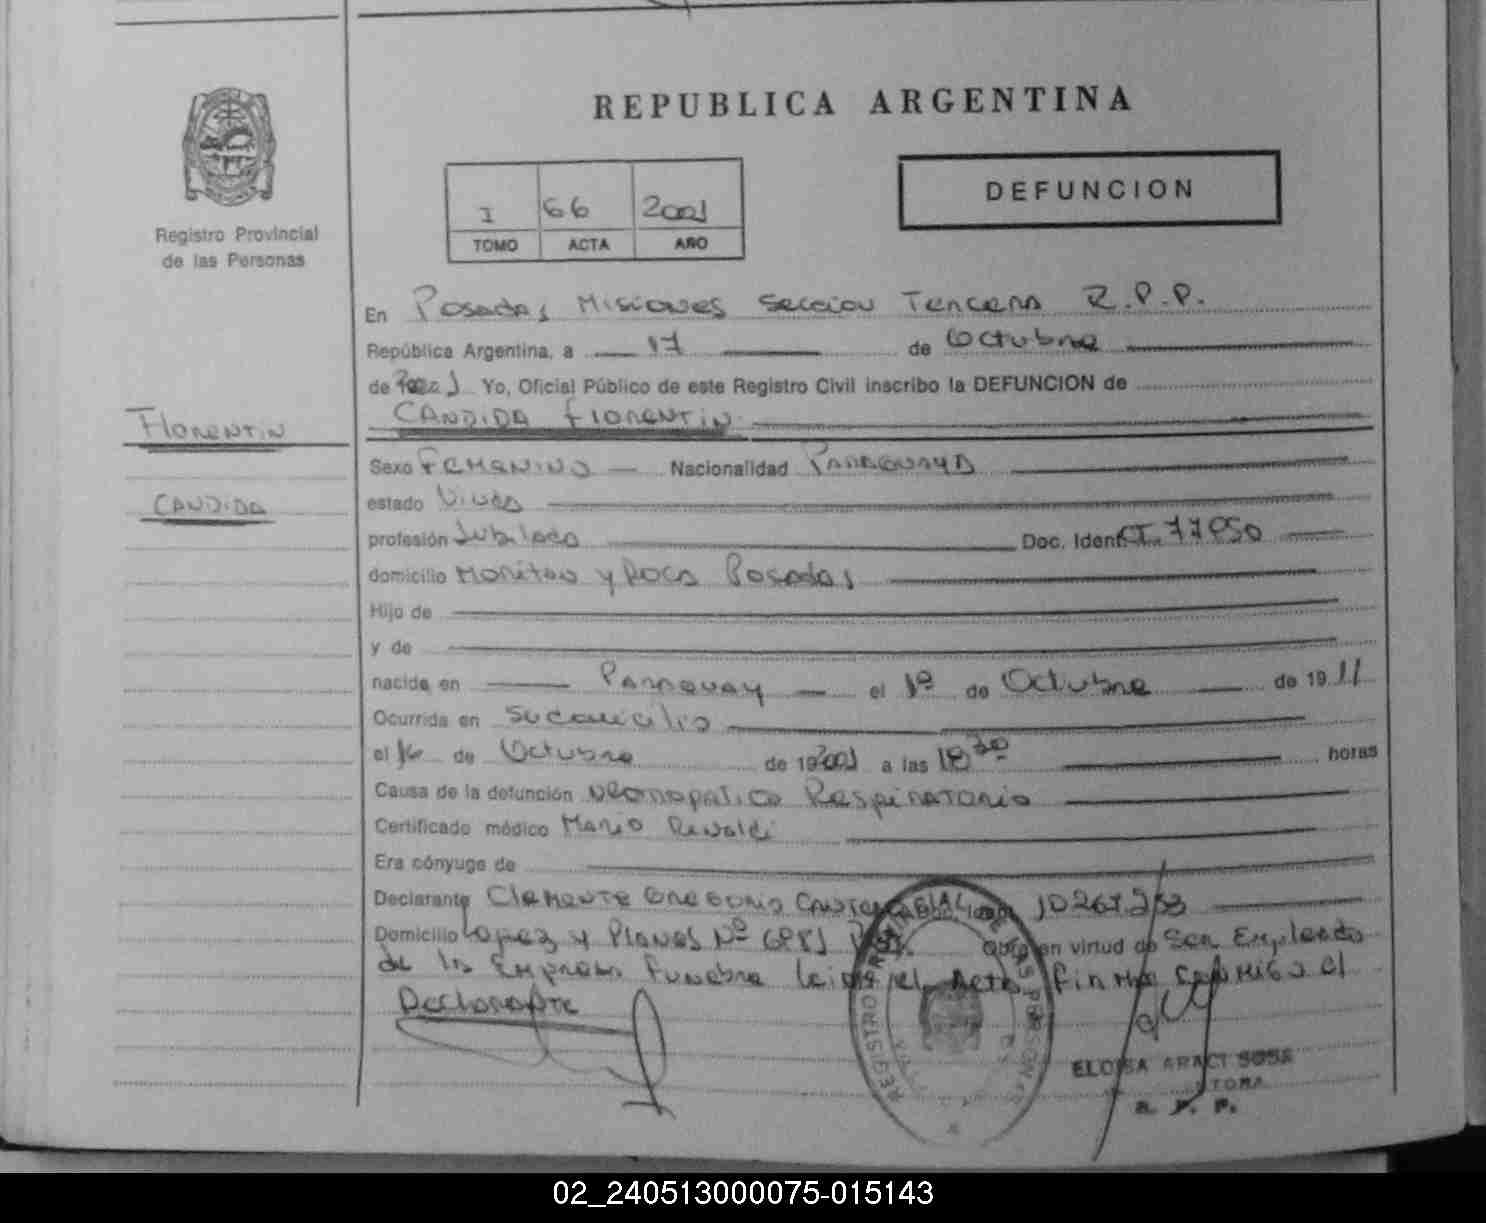 REPUBLICA ARGENTINA
DEFUNCION
I 66 2001
TOMO ACTA AÑO
Registro Provincial
de las Personas
En Posadas Misiones Seccion Tercera R.P.P.
República Argentina, a 17 de Octubre
de 2001 Yo, Oficial Público de este Registro Civil inscribo la DEFUNCION de
CANDIDA FLORENTIN
FLORENTIN
CANDIDA
Sexo Femenino Nacionalidad Paraguaya
estado Viuda
profesión Jubilada Doc. Ident.
domicilio y Roca Posadas
Hijo de
y de
nacida en Paraguay el 1º de Octubre de 1911
Ocurrida en su domicilio
el 16 de Octubre de 192001 a las 18 30 horas
Causa de la defunción Respiratorio
Certificado médico Mario
Era cónyuge de
Declarante Clemente Gregorio
Domicilio Lopez y Planes Nº Quien en virtud de Ser Empleado
de la Empresa Funebre leida el Acta firma conmigo el
Declarante
ELOISA ARACI SOSA
R. P. P.
02_240513000075-015143